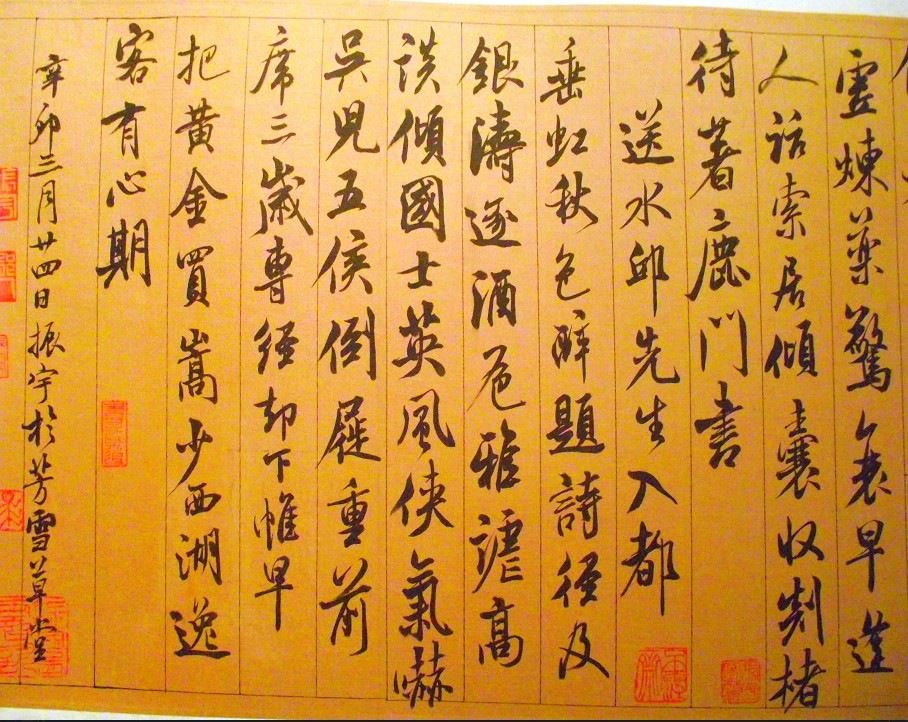 煉藥驚衰早
人話索居傾囊收剡楮
待著鹿門書
送水邱先生入都
垂虹秋色醉題詩徑及
銀濤逐酒卮雅謔高
談傾國士英風俠氣嚇
吳兒五侯倒屣重前
席三歲專經却下帷早
把黃金買嵩少西湖逸
客有心期
辛卯三月廿四日振宇於芳雪草堂